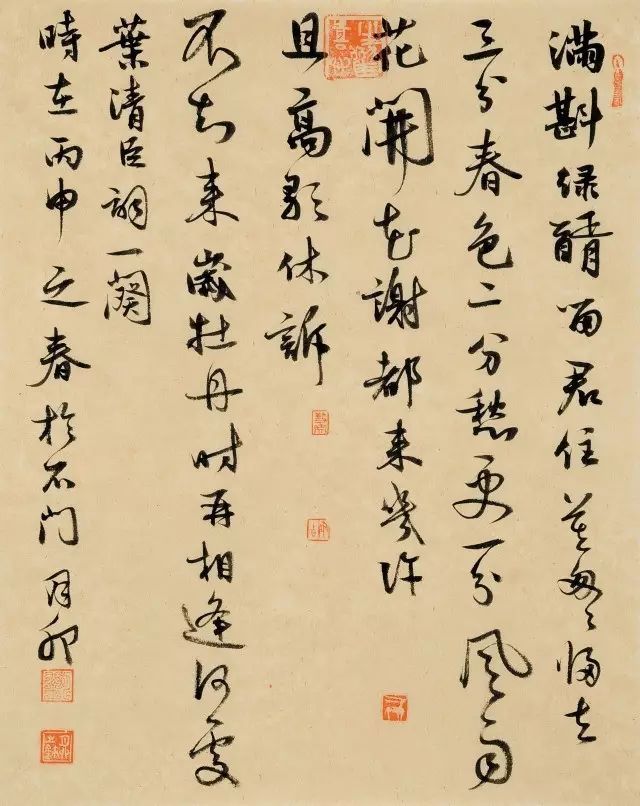 滿斟绿醑留君住莫匆匆歸去
三分春色二分愁更一分風雨
花開花謝都来幾许
且高歌休訴
不知来歲牡丹时再相逢何處
葉清臣詞一闋
時在丙申之春於石门月卯